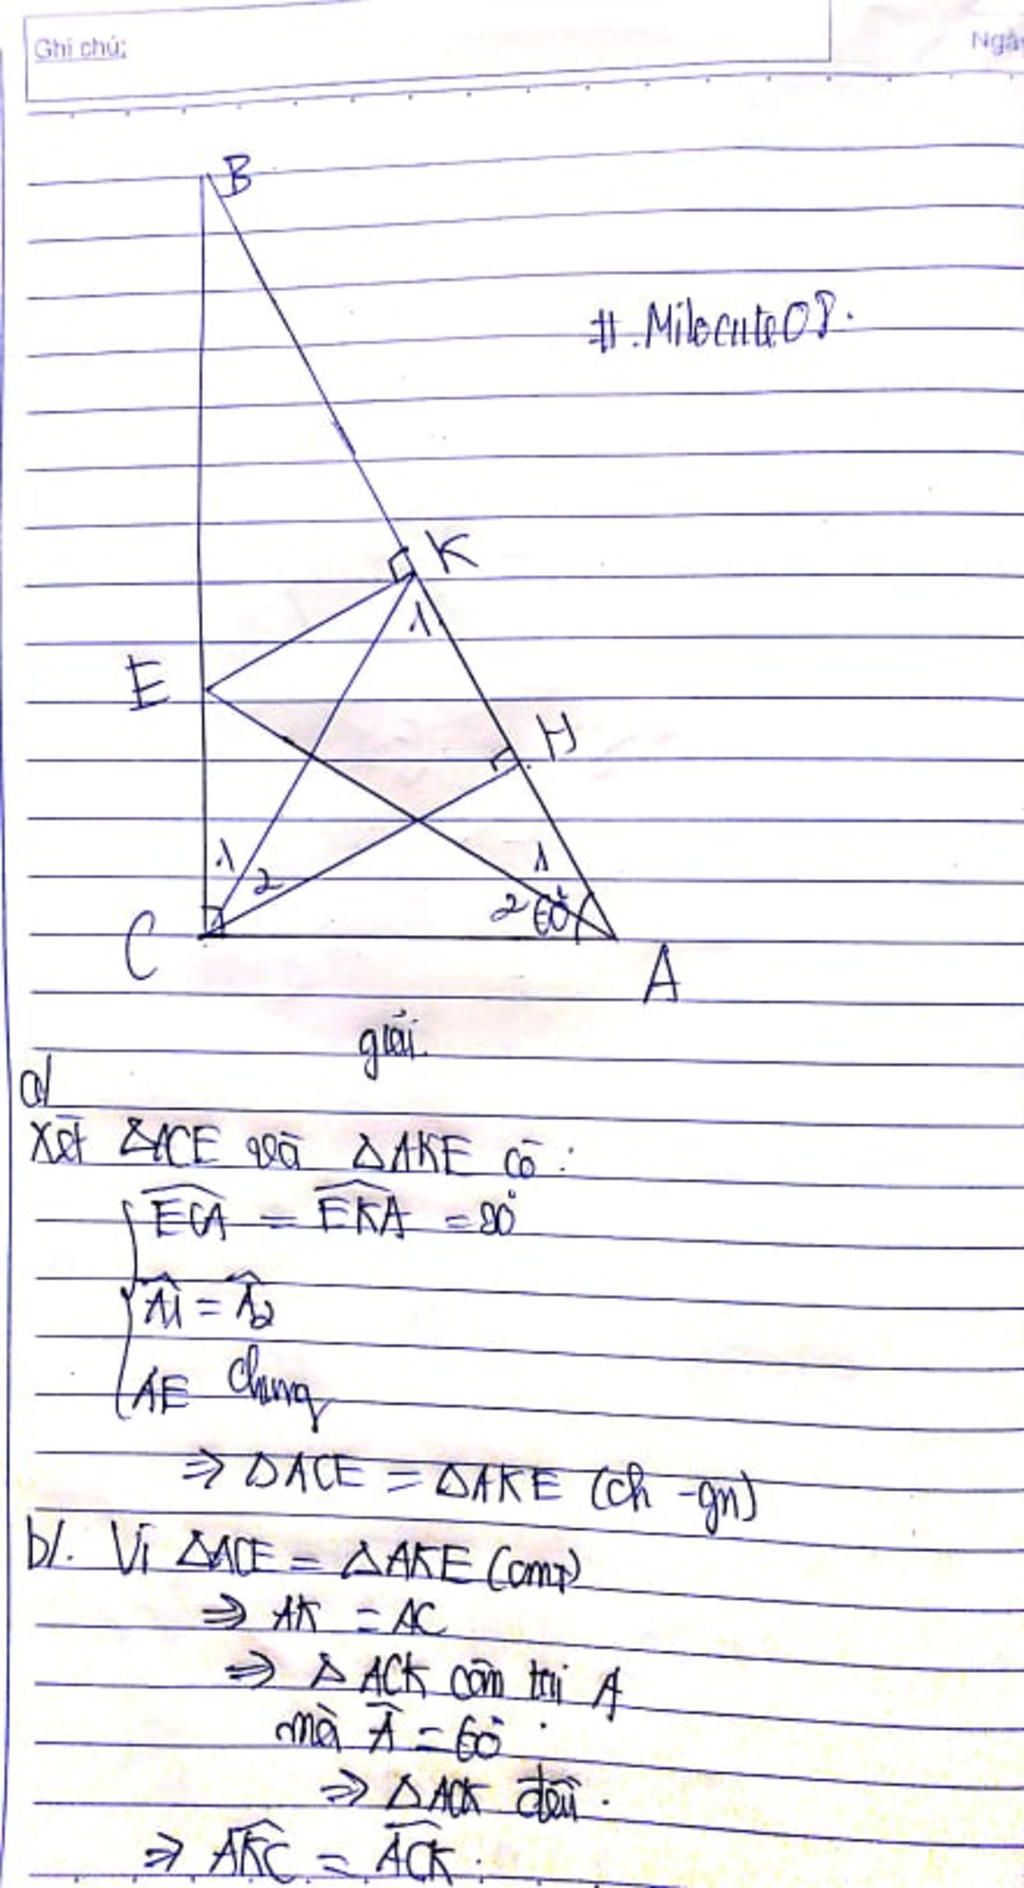 Ghi chú:
Ngày
B
#.Milocute08.
K
1
E
H
1
1
2
2 60°
C
A
giải.
a/
Xét ΔACE và ΔAKE có:
ECA = EKA = 90°
A1 = A2
AE chung
⇒ ΔACE = ΔAKE (ch - gn)
b/. Vì ΔACE = ΔAKE (cmt)
⇒ AK = AC
⇒ ΔACK cân tại A
mà A = 60°.
⇒ ΔACK đều.
⇒ AKC = ACK.